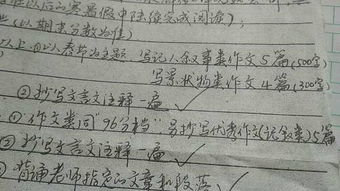 在以后的寒暑假中陆续完成阅读）；
（以期末分数为准）
以上，以春节为主题，写记人叙事类作文5篇（500字）
写景状物类作文4篇（300字）
②抄写文言文注释一遍
①作文类同“96分档”，另抄写优秀作文（记叙类）5篇
②抄写文言文注释一遍
背诵老师指定的文章和段落